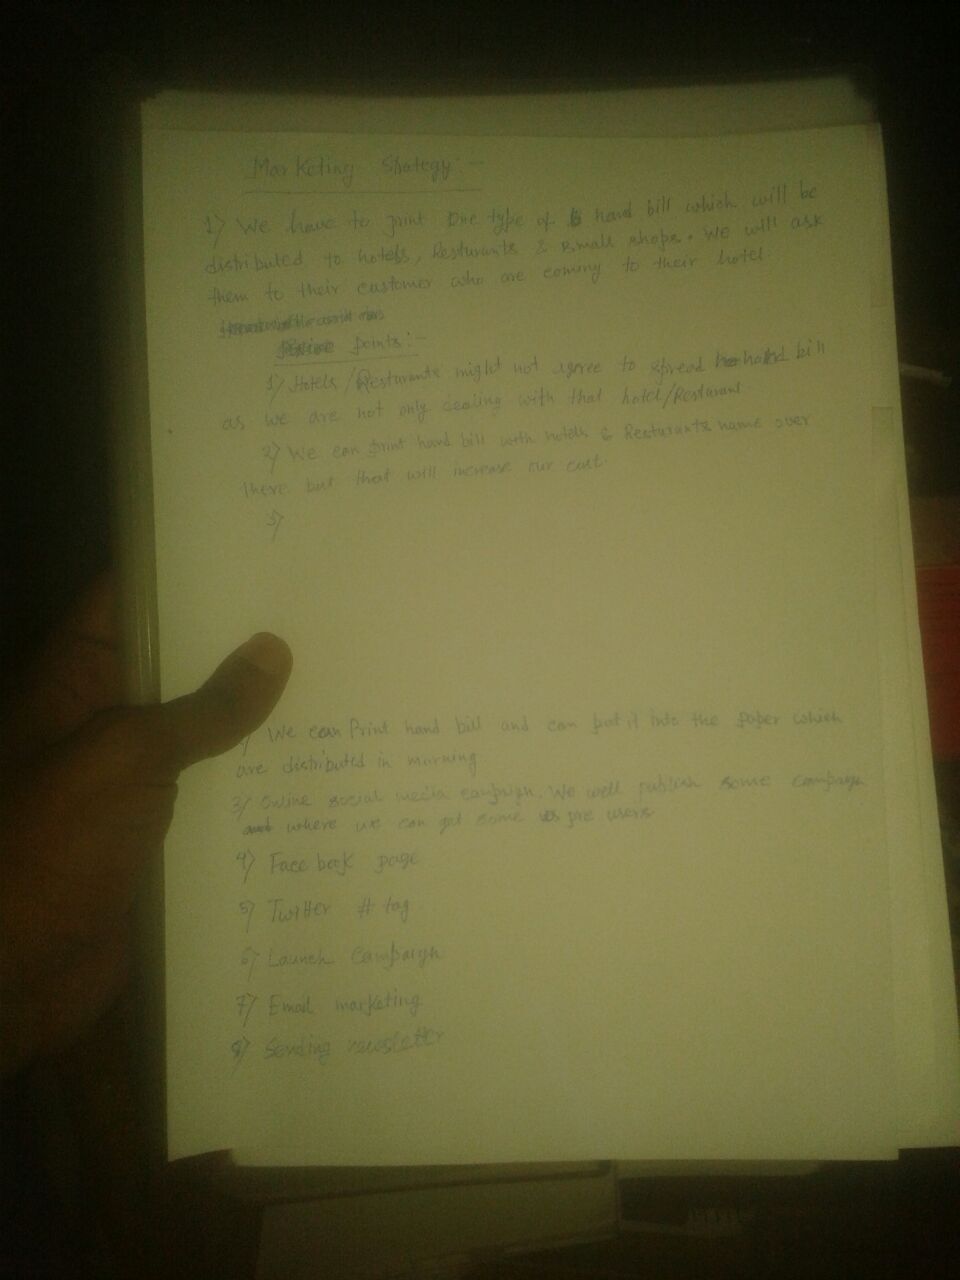 Marketing Strategy:-
1) We have to print One type of hand bill which will be
distributed to hotels, Resturants & small shops. We will ask
them to their customer who are coming to their hotel.
points:-
1) Hotels/Resturants might not agree to spread hand bill
as we are not only dealing with that hotel/Resturant
2) We can print hand bill with hotels & Resturants name over
there but that will increase our cost.
3)
We can Print hand bill and can put it into the paper which
are distributed in morning
3) Online social media campaign. We will publish some campaign
where we can get some pre users
4) Face book page
5) Twitter # tag
6) Launch campaign
7) Email marketing
8) Sending newsletter